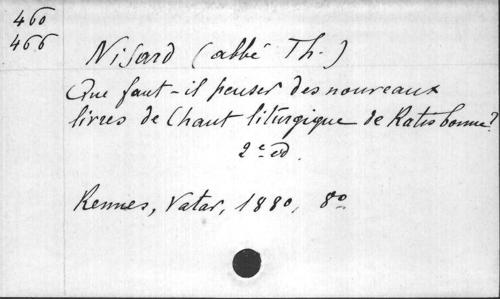 460
466
Nisard (abbé Th.)
Que faut-il penser des nouveaux
livres de Chant liturgique de Ratisbonne?
2e ed.
Rennes, Vatar, 1880, 8o